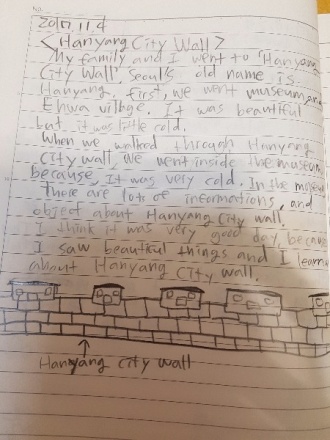 2017.11.4
<Hanyang City Wall>
My family and I went to "Hanyang
City Wall", Seoul's old name is
Hanyang, first, we went museum and
Ehwa village. It was beautiful
but it was little cold.
When we walked through Hanyang
city wall, we went inside the museum
because It was very cold. In the museum
Those are lots of informations, and
object about Hanyang City wall.
I think it was very good day, because
I saw beautiful things and I learn
about Hanyang City wall.
Hanyang city wall